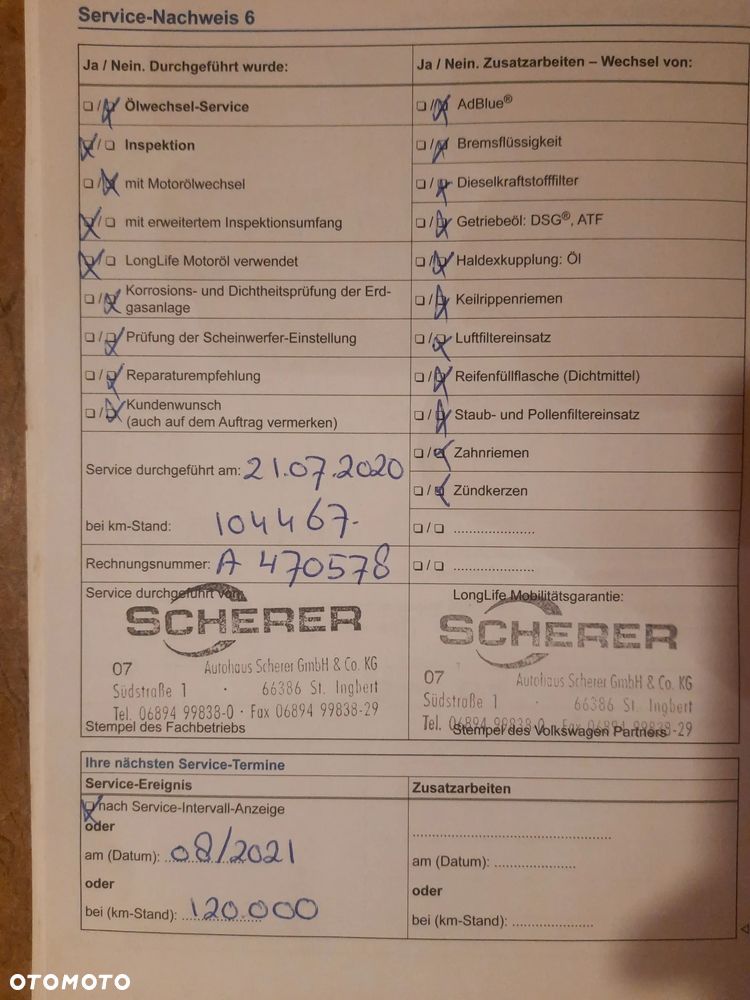 Service-Nachweis 6
Ja / Nein. Durchgeführt wurde:
☐/☒ Ölwechsel-Service
☒/☐ Inspektion
☐/☒ mit Motorölwechsel
☒/☐ mit erweitertem Inspektionsumfang
☒/☐ LongLife Motoröl verwendet
☐/☒ Korrosions- und Dichtheitsprüfung der Erd-
gasanlage
☐/☒ Prüfung der Scheinwerfer-Einstellung
☐/☒ Reparaturempfehlung
☐/☒ Kundenwunsch
(auch auf dem Auftrag vermerken)
Service durchgeführt am: 21.07.2020
bei km-Stand: 104467.
Rechnungsnummer: A 470578
Service durchgeführt von:
SCHERER
07 Autohaus Scherer GmbH & Co. KG
Südstraße 1 · 66386 St. Ingbert
Tel. 06894 99838-0 · Fax 06894 99838-29
Stempel des Fachbetriebs
Ja / Nein. Zusatzarbeiten – Wechsel von:
☐/☒ AdBlue®
☐/☒ Bremsflüssigkeit
☐/☒ Dieselkraftstofffilter
☐/☒ Getriebeöl: DSG®, ATF
☐/☒ Haldexkupplung: Öl
☐/☒ Keilrippenriemen
☐/☒ Luftfiltereinsatz
☐/☒ Reifenfüllflasche (Dichtmittel)
☐/☒ Staub- und Pollenfiltereinsatz
☐/☒ Zahnriemen
☐/☒ Zündkerzen
☐/☐ .....................
☐/☐ .....................
LongLife Mobilitätsgarantie:
SCHERER
07 Autohaus Scherer GmbH & Co. KG
Südstraße 1 · 66386 St. Ingbert
Tel. 06894 99838-0 · Fax 06894 99838-29
Stempel des Volkswagen Partners
Ihre nächsten Service-Termine
Service-Ereignis
☒ nach Service-Intervall-Anzeige
oder
am (Datum): 08/2021
oder
bei (km-Stand): 120.000
Zusatzarbeiten
.....................
am (Datum): .....................
oder
bei (km-Stand): .....................
OTOMOTO